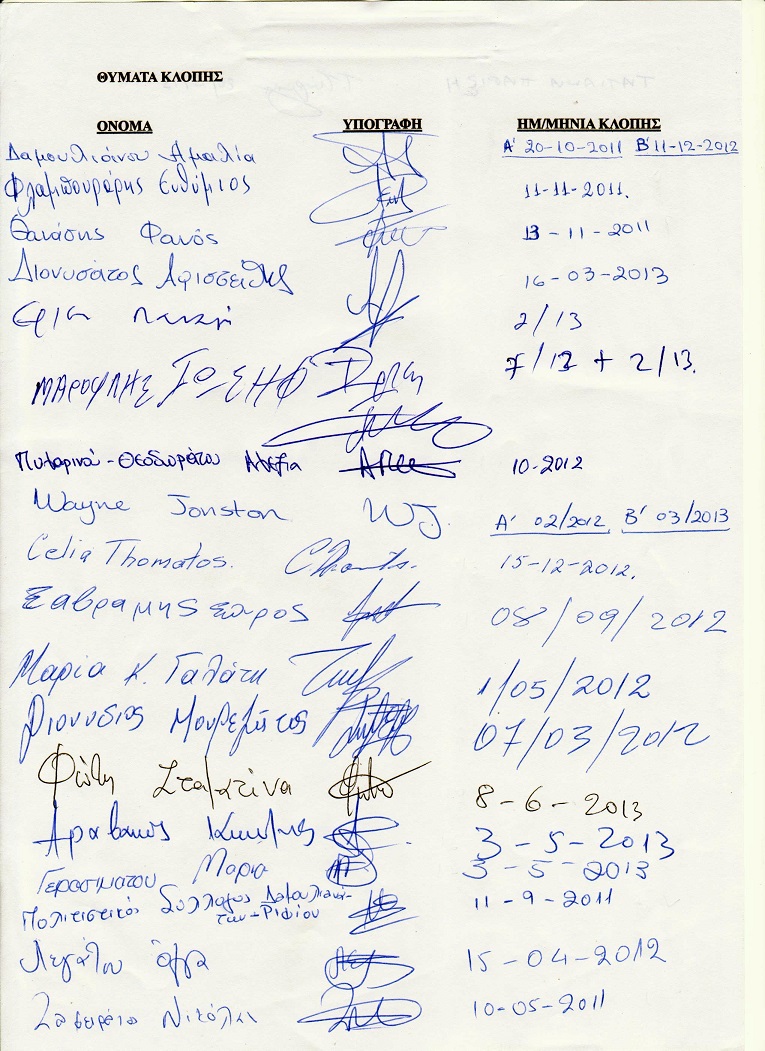 ΘΥΜΑΤΑ ΚΛΟΠΗΣ
ΟΝΟΜΑ ΥΠΟΓΡΑΦΗ ΗΜ/ΜΗΝΙΑ ΚΛΟΠΗΣ
Δαμουλιάνου Αμαλία Α' 20-10-2011 Β' 11-12-2012
Φλαμπουράρης Ευθύμιος 11-11-2011.
Θανάσης Φανός 13-11-2011
Διονυσάτος 16-03-2013
2/13
ΜΑΡΟΥΛΗΣ ΙΩΣΗΦ 7/12 + 2/13.
Θεοδωράτου 10-2012
Wayne Jonston WJ. Α' 02/2012 Β' 03/2013
Celia Thomatos. 15-12-2012.
Σαβράμης Σπύρος 08/09/2012
Μαρία Κ. Γαλάτη 1/05/2012
Διονύσιος Μουρελάτος 07/03/2012
Φώτη Σταματίνα 8-6-2013
Αραβανός 3-5-2013
Γερασιμάτου Μαρία 3-5-2013
Πολιτιστικός Σύλλογος Δαμουλιανά-
των-Ριφίου 11-9-2011
Λεγάτου Όλγα 15-04-2012
10-05-2011